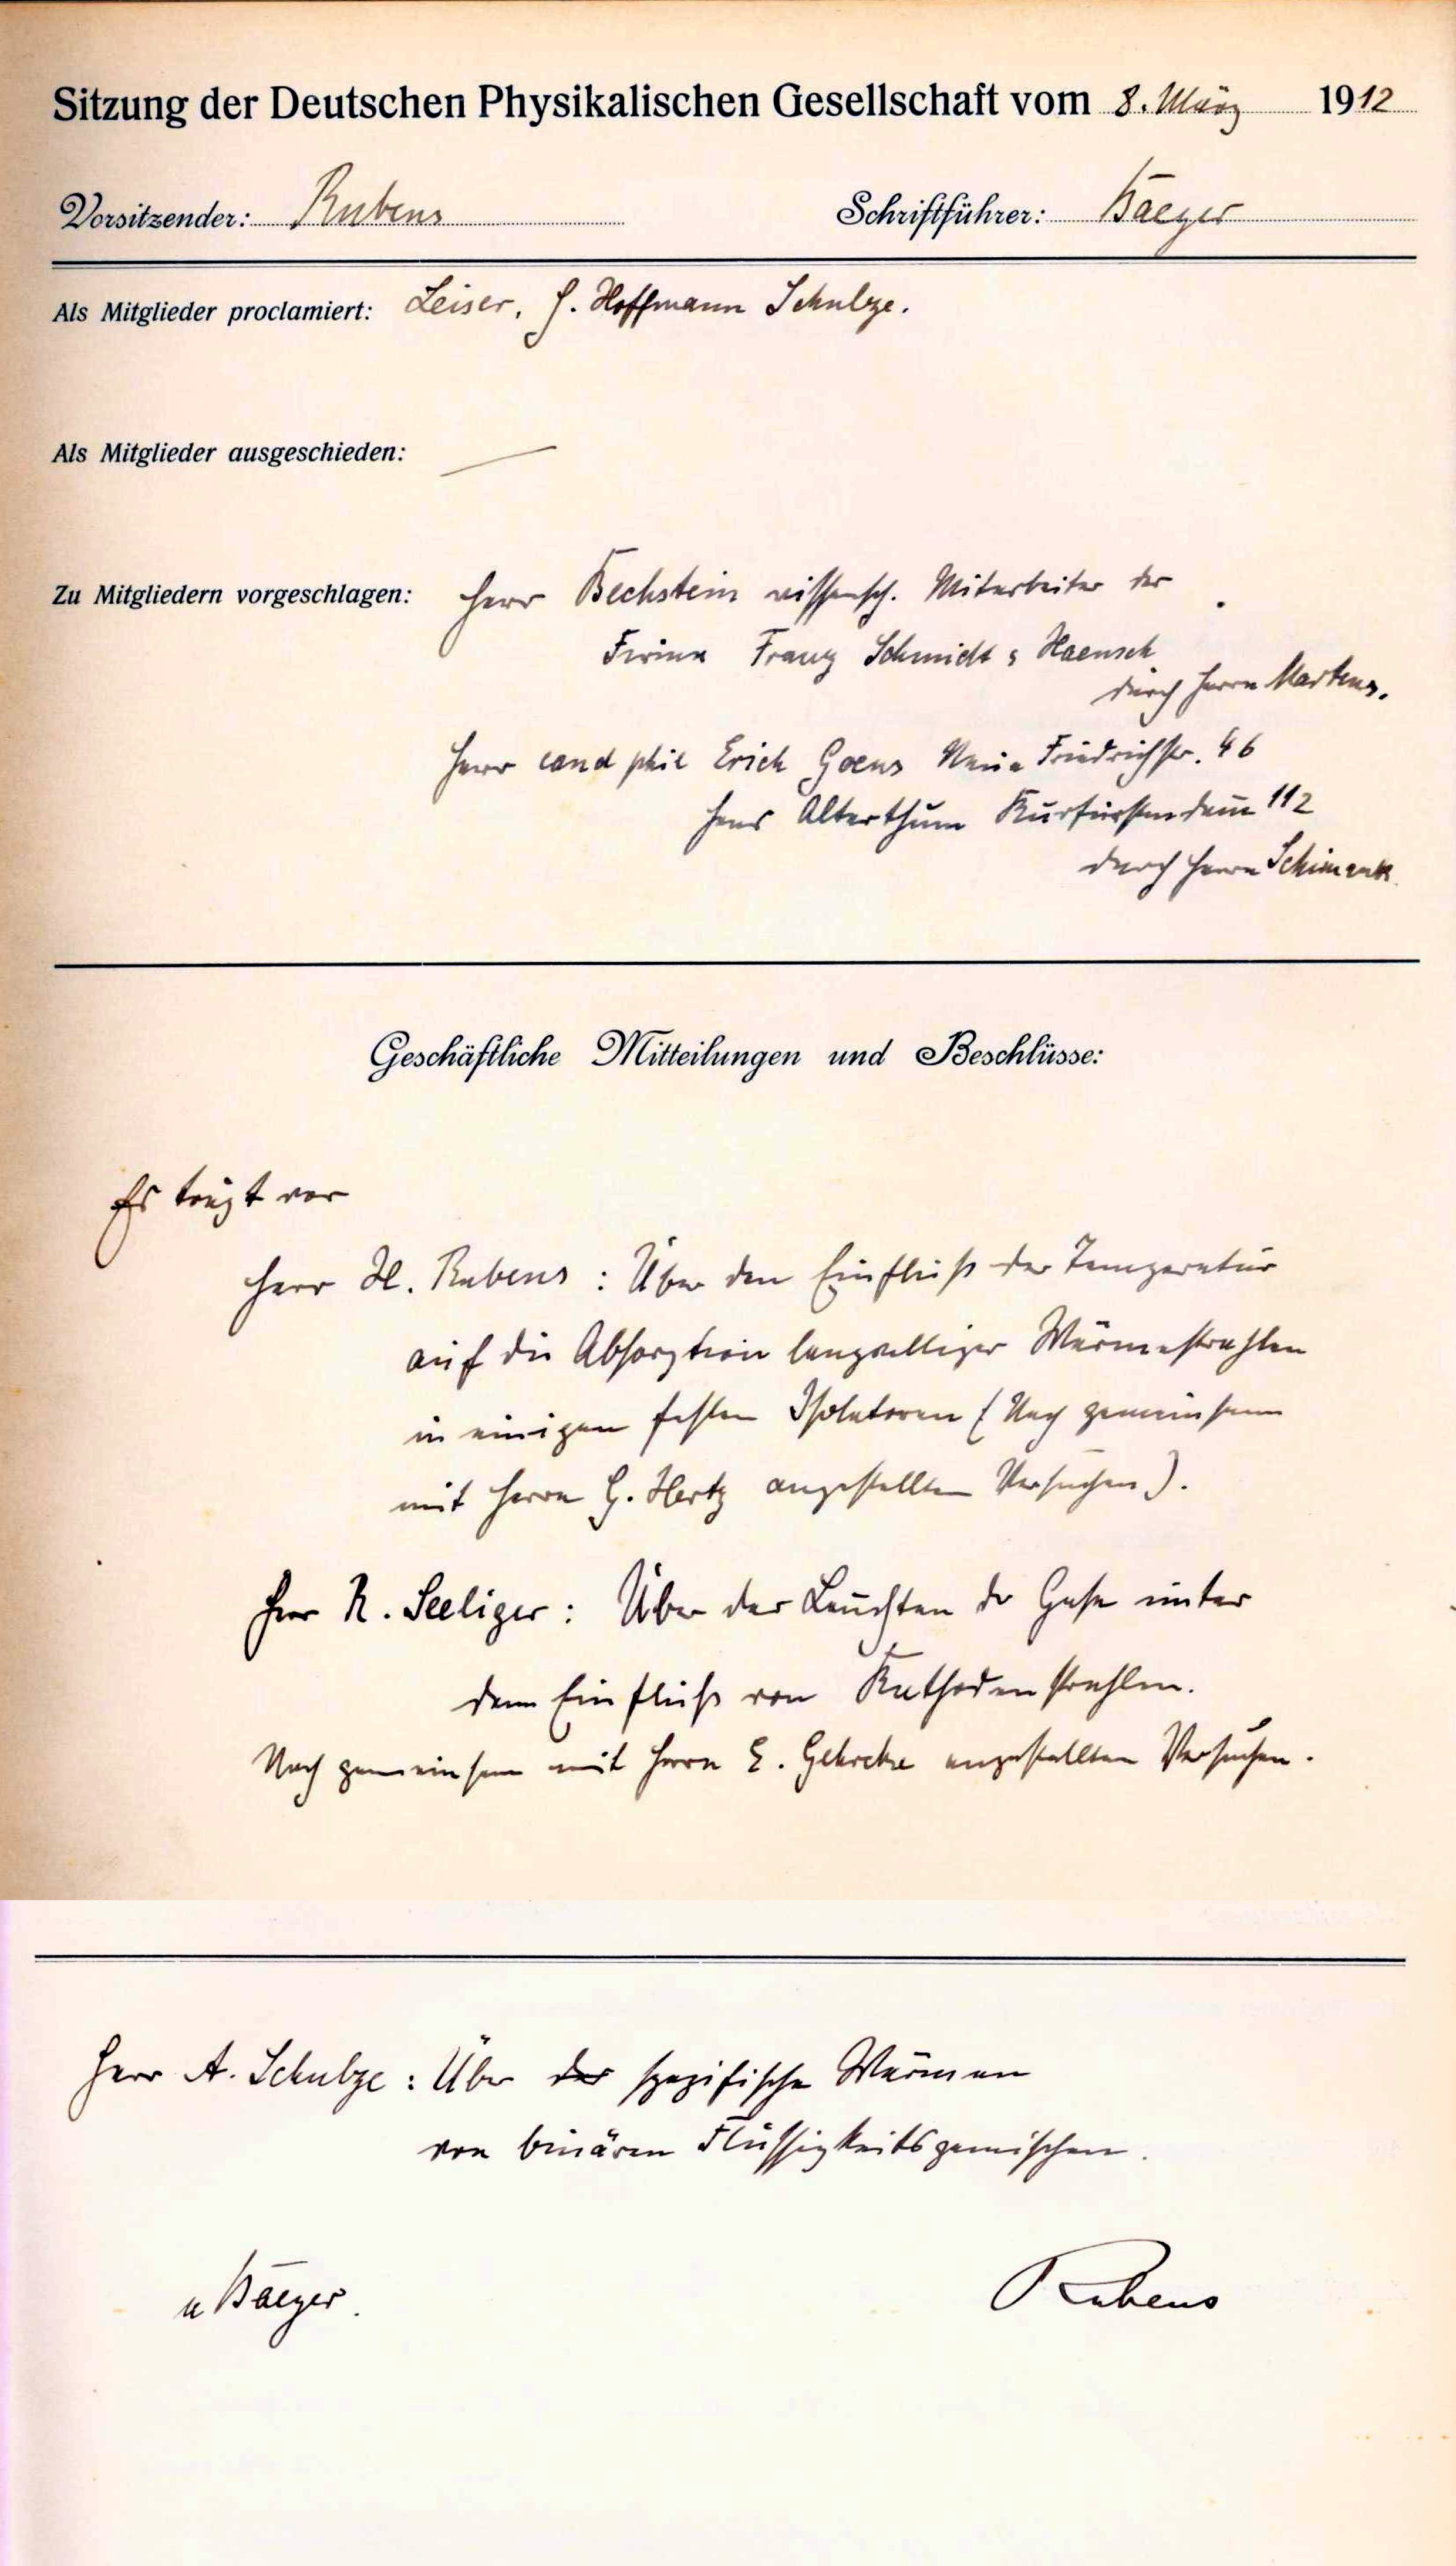 Sitzung der Deutschen Physikalischen Gesellschaft vom 8. März 1912
Vorsitzender: Rubens Schriftführer: v Baeyer
Als Mitglieder proclamiert: Leiser, G. Hoffmann Schulze.
Als Mitglieder ausgeschieden: —
Zu Mitgliedern vorgeschlagen: Herr Bechstein wissensch. Mitarbeiter der
Firma Franz Schmidt & Haensch
durch Herrn Martens.
Herr cand phil Erich Goens Neue Friedrichstr. 46
Hans Alterthum Kurfürstendam̄ 112
durch Herrn Schimank
Geschäftliche Mitteilungen und Beschlüsse:
Es trägt vor
Herr H. Rubens : Über den Einfluß der Temperatur
auf die Absorption langwelliger Wärmestrahlen
in einigen festen Isolatoren (Nach gemeinsam
mit Herrn G. Hertz angestellten Versuchen).
Herr R. Seeliger : Über das Leuchten der Gase unter
dem Einfluß von Kathodenstrahlen.
Nach gemeinsam mit Herrn E. Gehrcke angestellten Versuchen.
Herr A. Schulze : Über spezifische Wärmen
von binären Flüssigkeitsgemischen.
v Baeyer. Rubens